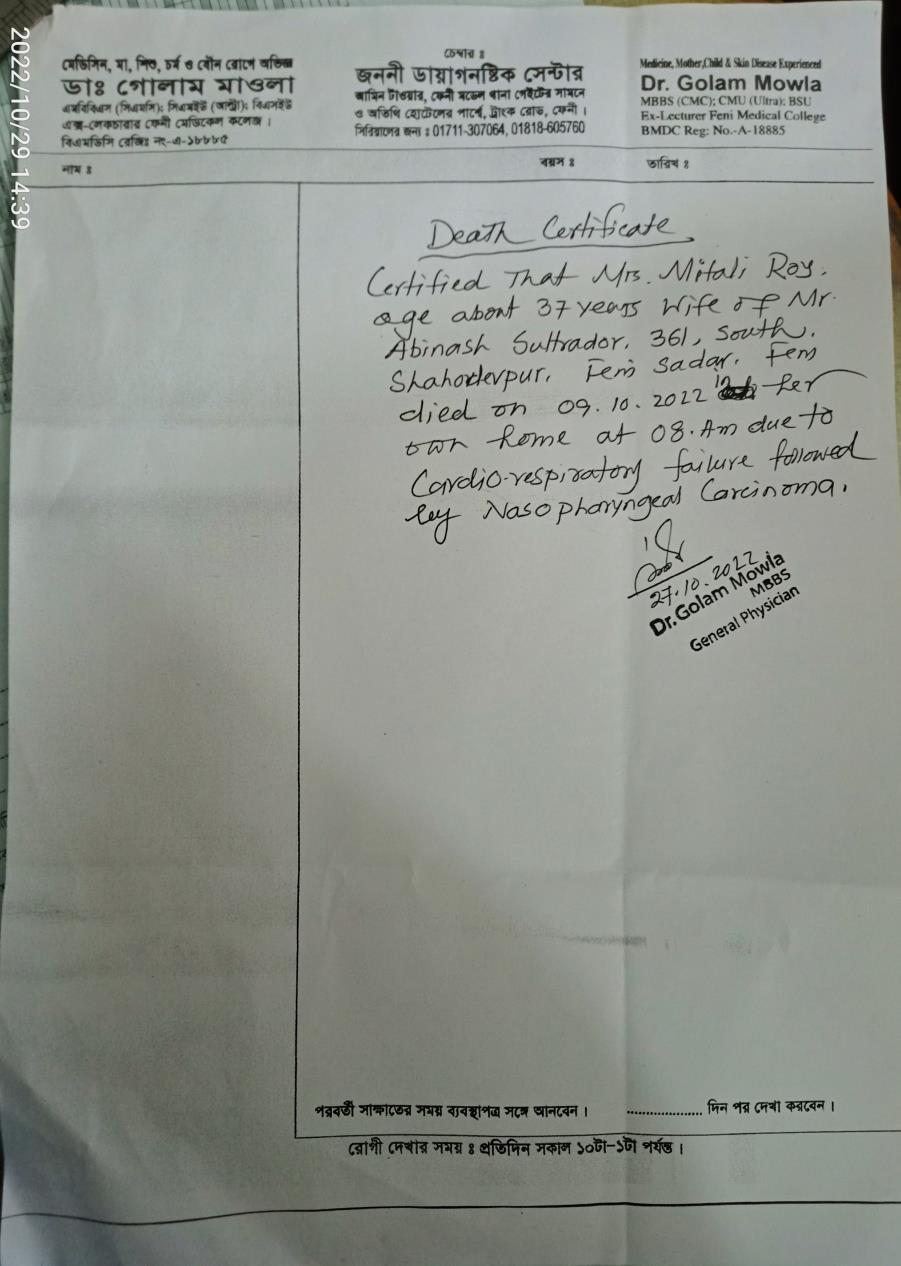 2022/10/29 14:39
মেডিসিন, মা, শিশু, চর্ম ও যৌন রোগে অভিজ্ঞ
ডাঃ গোলাম মাওলা
এমবিবিএস (সিএমসি); সিএমইউ (আল্ট্রা); বিএসইউ
এক্স-লেকচারার ফেনী মেডিকেল কলেজ।
বিএমডিসি রেজিঃ নং-এ-১৮৮৮৫
চেম্বার ঃ
জননী ডায়াগনষ্টিক সেন্টার
আমিন টাওয়ার, ফেনী মডেল থানা গেইটের সামনে
ও অতিথি হোটেলের পার্শ্বে, ট্রাংক রোড, ফেনী।
সিরিয়ালের জন্য : 01711-307064, 01818-605760
Medicine, Mother,Child & Skin Disease Experienced
Dr. Golam Mowla
MBBS (CMC); CMU (Ultra); BSU
Ex-Lecturer Feni Medical College
BMDC Reg: No.-A-18885
নাম ঃ বয়স ঃ তারিখ ঃ
Death Certificate
Certified That Mrs. Mitali Roy.
age about 37 years Wife of Mr.
Abinash Suttrador. 361, South.
Shahodevpur. Feni Sadar. Feni
died on 09.10.2022 in her
own home at 08.Am due to
Cardio-respiratory failure followed
by Nasopharyngeal Carcinoma.
27.10.2022
Dr. Golam Mowla
MBBS
General Physician
পরবর্তী সাক্ষাতের সময় ব্যবস্থাপত্র সঙ্গে আনবেন। .................... দিন পর দেখা করবেন।
রোগী দেখার সময় ঃ প্রতিদিন সকাল ১০টা-১টা পর্যন্ত।